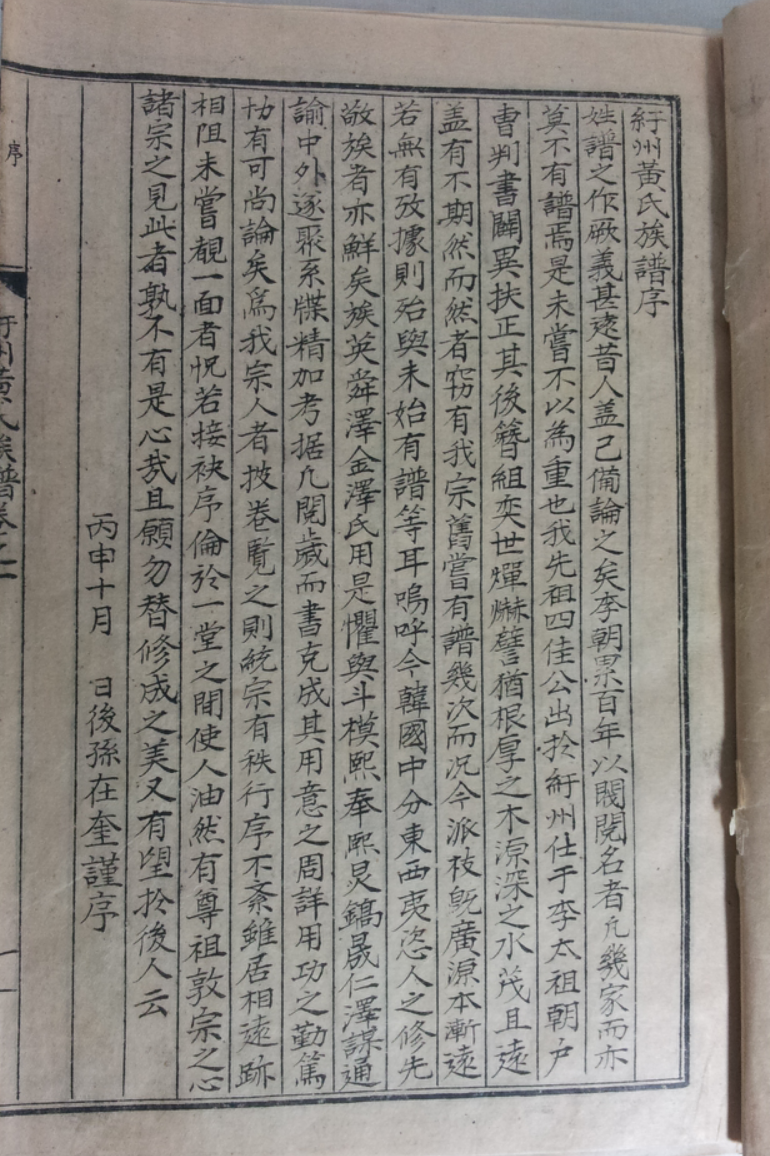 紆州黃氏族譜序
姓譜之作厥義甚遠昔人盖己備論之矣李朝累百年以閥閱名者凡幾家而亦
莫不有譜焉是未嘗不以為重也我先祖四佳公出於紆州仕于李太祖朝户
曹判書闢異扶正其後簪組奕世燀爀譬猶根厚之木源深之水茂且遠
盖有不期然而然者窃有我宗舊嘗有譜幾次而况今派枝旣廣源本漸遠
若無有攷據則殆與未始有譜等耳嗚呼今韓國中分東西夷恣人之修先
敬族者亦鮮矣族英舜澤金澤氏用是懼與斗模熙奉熙炅鎬晟仁澤謀通
諭中外逐聚系牒精加考据凡閱歲而書克成其用意之周詳用功之勤篤
㔹有可尚論矣爲我宗人者披卷覽之則統宗有秩行序不紊雖居相遠跡
相阻未嘗覩一面者怳若接袂序倫於一堂之間使人油然有尊祖敦宗之心
諸宗之見此者孰不有是心㢤且願勿替修成之美又有望於後人云
丙申十月 日後孫在奎謹序
序
紆州黃氏族譜卷之一